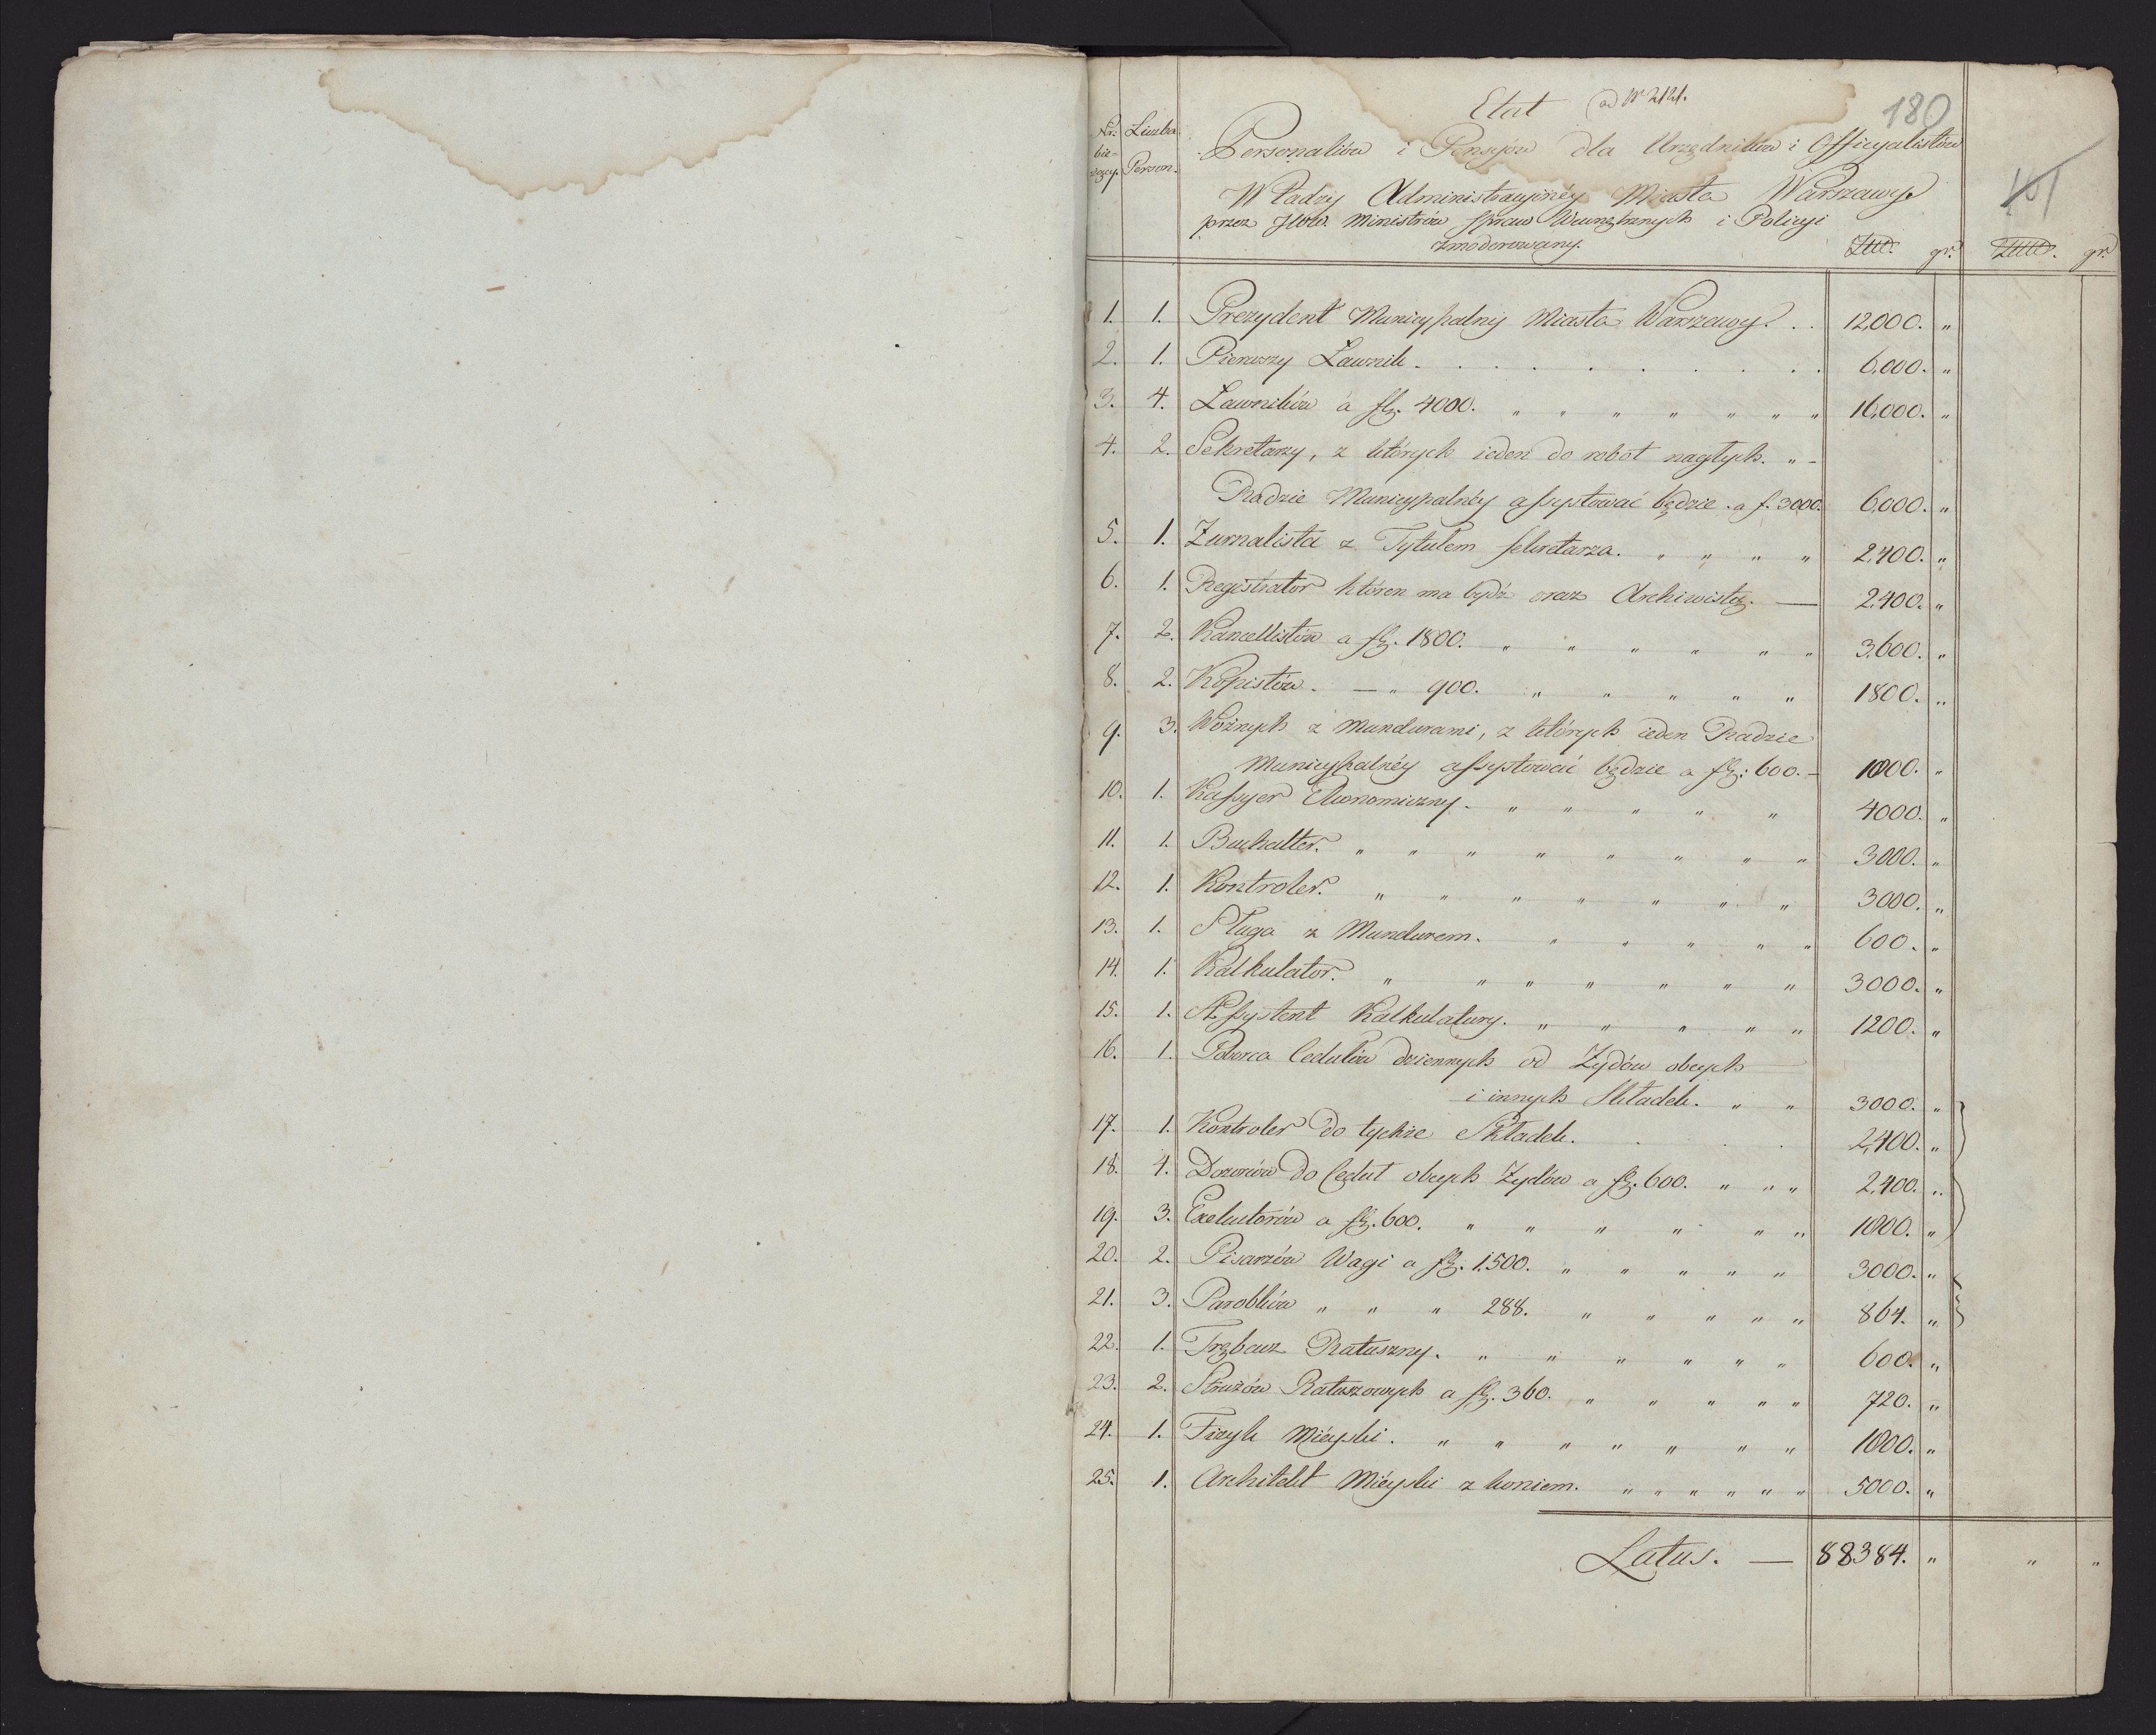 Etat ad Nr 2121.
180
Nr: bie= żący.
Liczba Person.
Personaliów i Pensyów dla Urzędników i Officyalistów
Władzy Administracyjnéy Miasta Warszawy.
przez JWW. Ministrów Spraw Wewnętrznych i Policyi
zmoderowany.
gr.
gr.
1. 1. Prezydent Municypalny Miasta Warszawy. . . 12,000. "
2. 1. Pierwszy Ławnik. . . . . . . . . . 6,000. "
3. 4. Ławników á fl. 4000. " " " " " " " 16,000. "
4. 2. Sekretarzy, z których ieden do robot nagłych. " -
Radzie Municypalnéy assystować będzie. a f. 3000. 6,000. "
5. 1. Zurnalista z Tytułem sekretarza. " " " " 2,400. "
6. 1. Registrator któren ma bydź oraz Archiwistą. — 2,400. "
7. 2. Kancellistów a fl. 1800. " " " " " " 3,600. "
8. 2. Kopistów. — " 900. " " " " " 1800. "
9. 3. Woźnych z Mundurami, z których ieden Radzie
Municypalnéy assystować będzie a fl: 600. - 1800. "
10. 1. Kassyer Ekonomiczny. " " " " " 4000. "
11. 1. Buchalter. " " " " " " " " 3000. "
12. 1. Kontroler. " " " " " " " 3000. "
13. 1. Sługa z Mundurem. " " " " " 600. "
14. 1. Kalkulator. " " " " " " " 3000. "
15. 1. Assystent Kalkulatury. " " " " " 1200. "
16. 1. Poborca Cedułów dziennych od Żydów obcych
i innych Składek. " " 3000. "
17. 1. Kontroler do tychże Składek. . . . 2,400. "
18. 4. Dozorców do Cedut obcych Żydów a fl. 600. " " " 2,400. "
19. 3. Exekutorów a fl. 600. " " " " " " 1800. "
20. 2. Pisarzów Wagi a fl. 1500. " " " " " 3000. "
21. 3. Parobków " " " 288. " " " " " 864. "
22. 1. Trębacz Ratuszny. " " " " " " 600. "
23. 2. Stróżów Ratuszowych a fl. 360. " " " " " 720. "
24. 1. Fizyk Mieyski. " " " " " " " 1800. "
25. 1. Architekt Mieyski z koniem. " " " " " " 5000. "
Latus. — 88384. " " "